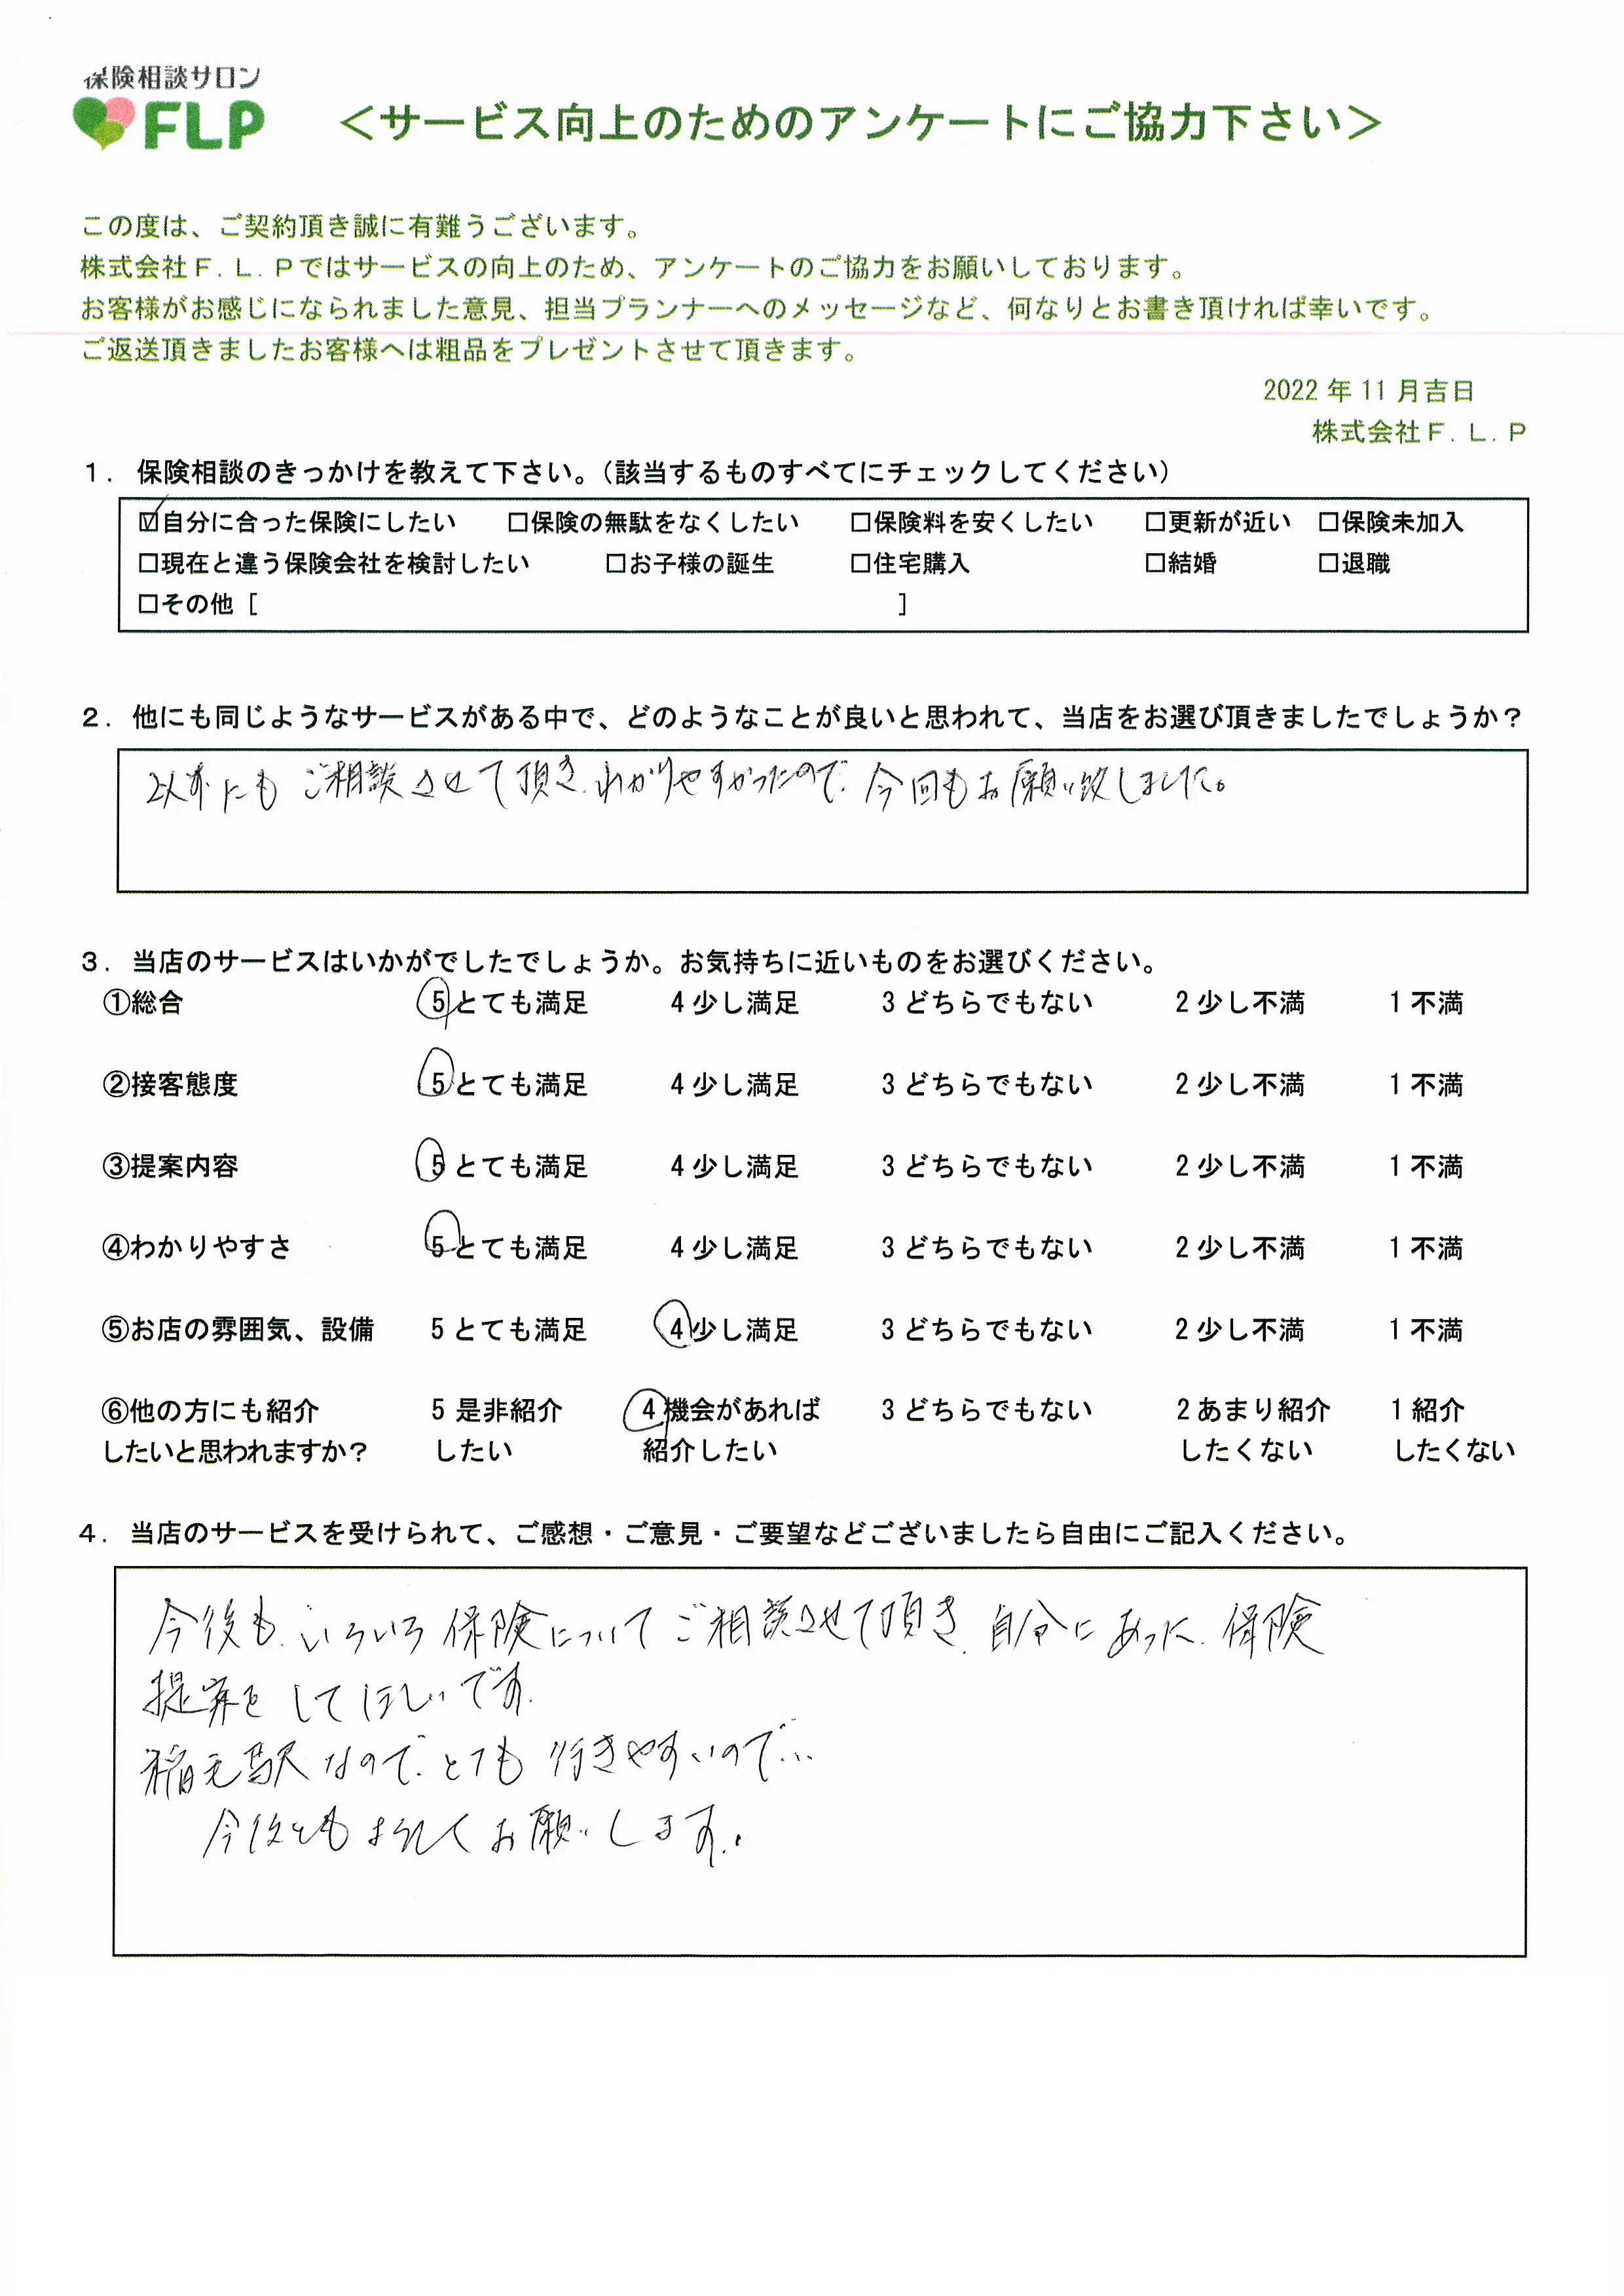 保険相談サロン
FLP
＜サービス向上のためのアンケートにご協力下さい＞
この度は、ご契約頂き誠に有難うございます。
株式会社Ｆ．Ｌ．Ｐではサービスの向上のため、アンケートのご協力をお願いしております。
お客様がお感じになられました意見、担当プランナーへのメッセージなど、何なりとお書き頂ければ幸いです。
ご返送頂きましたお客様へは粗品をプレゼントさせて頂きます。
2022 年 11 月吉日
株式会社Ｆ．Ｌ．Ｐ
１．保険相談のきっかけを教えて下さい。（該当するものすべてにチェックしてください）
☑自分に合った保険にしたい　□保険の無駄をなくしたい　□保険料を安くしたい　□更新が近い　□保険未加入
□現在と違う保険会社を検討したい　□お子様の誕生　□住宅購入　□結婚　□退職
□その他［　　　　］
２．他にも同じようなサービスがある中で、どのようなことが良いと思われて、当店をお選び頂きましたでしょうか？
以前にも ご相談させて頂き、わかりやすかったので、今回もお願い致しました。
３．当店のサービスはいかがでしたでしょうか。お気持ちに近いものをお選びください。
①総合　5 とても満足　4 少し満足　3 どちらでもない　2 少し不満　1 不満
②接客態度　5 とても満足　4 少し満足　3 どちらでもない　2 少し不満　1 不満
③提案内容　5 とても満足　4 少し満足　3 どちらでもない　2 少し不満　1 不満
④わかりやすさ　5 とても満足　4 少し満足　3 どちらでもない　2 少し不満　1 不満
⑤お店の雰囲気、設備　5 とても満足　4 少し満足　3 どちらでもない　2 少し不満　1 不満
⑥他の方にも紹介　5 是非紹介　4 機会があれば　3 どちらでもない　2 あまり紹介　1 紹介
したいと思われますか？　したい　紹介したい　したくない　したくない
４．当店のサービスを受けられて、ご感想・ご意見・ご要望などございましたら自由にご記入ください。
今後も、いろいろ保険について ご相談させて頂き、自分にあった、保険
提案を してほしいです。
稲毛駅なので、とても 行きやすいので…
今後とも よろしくお願いします。